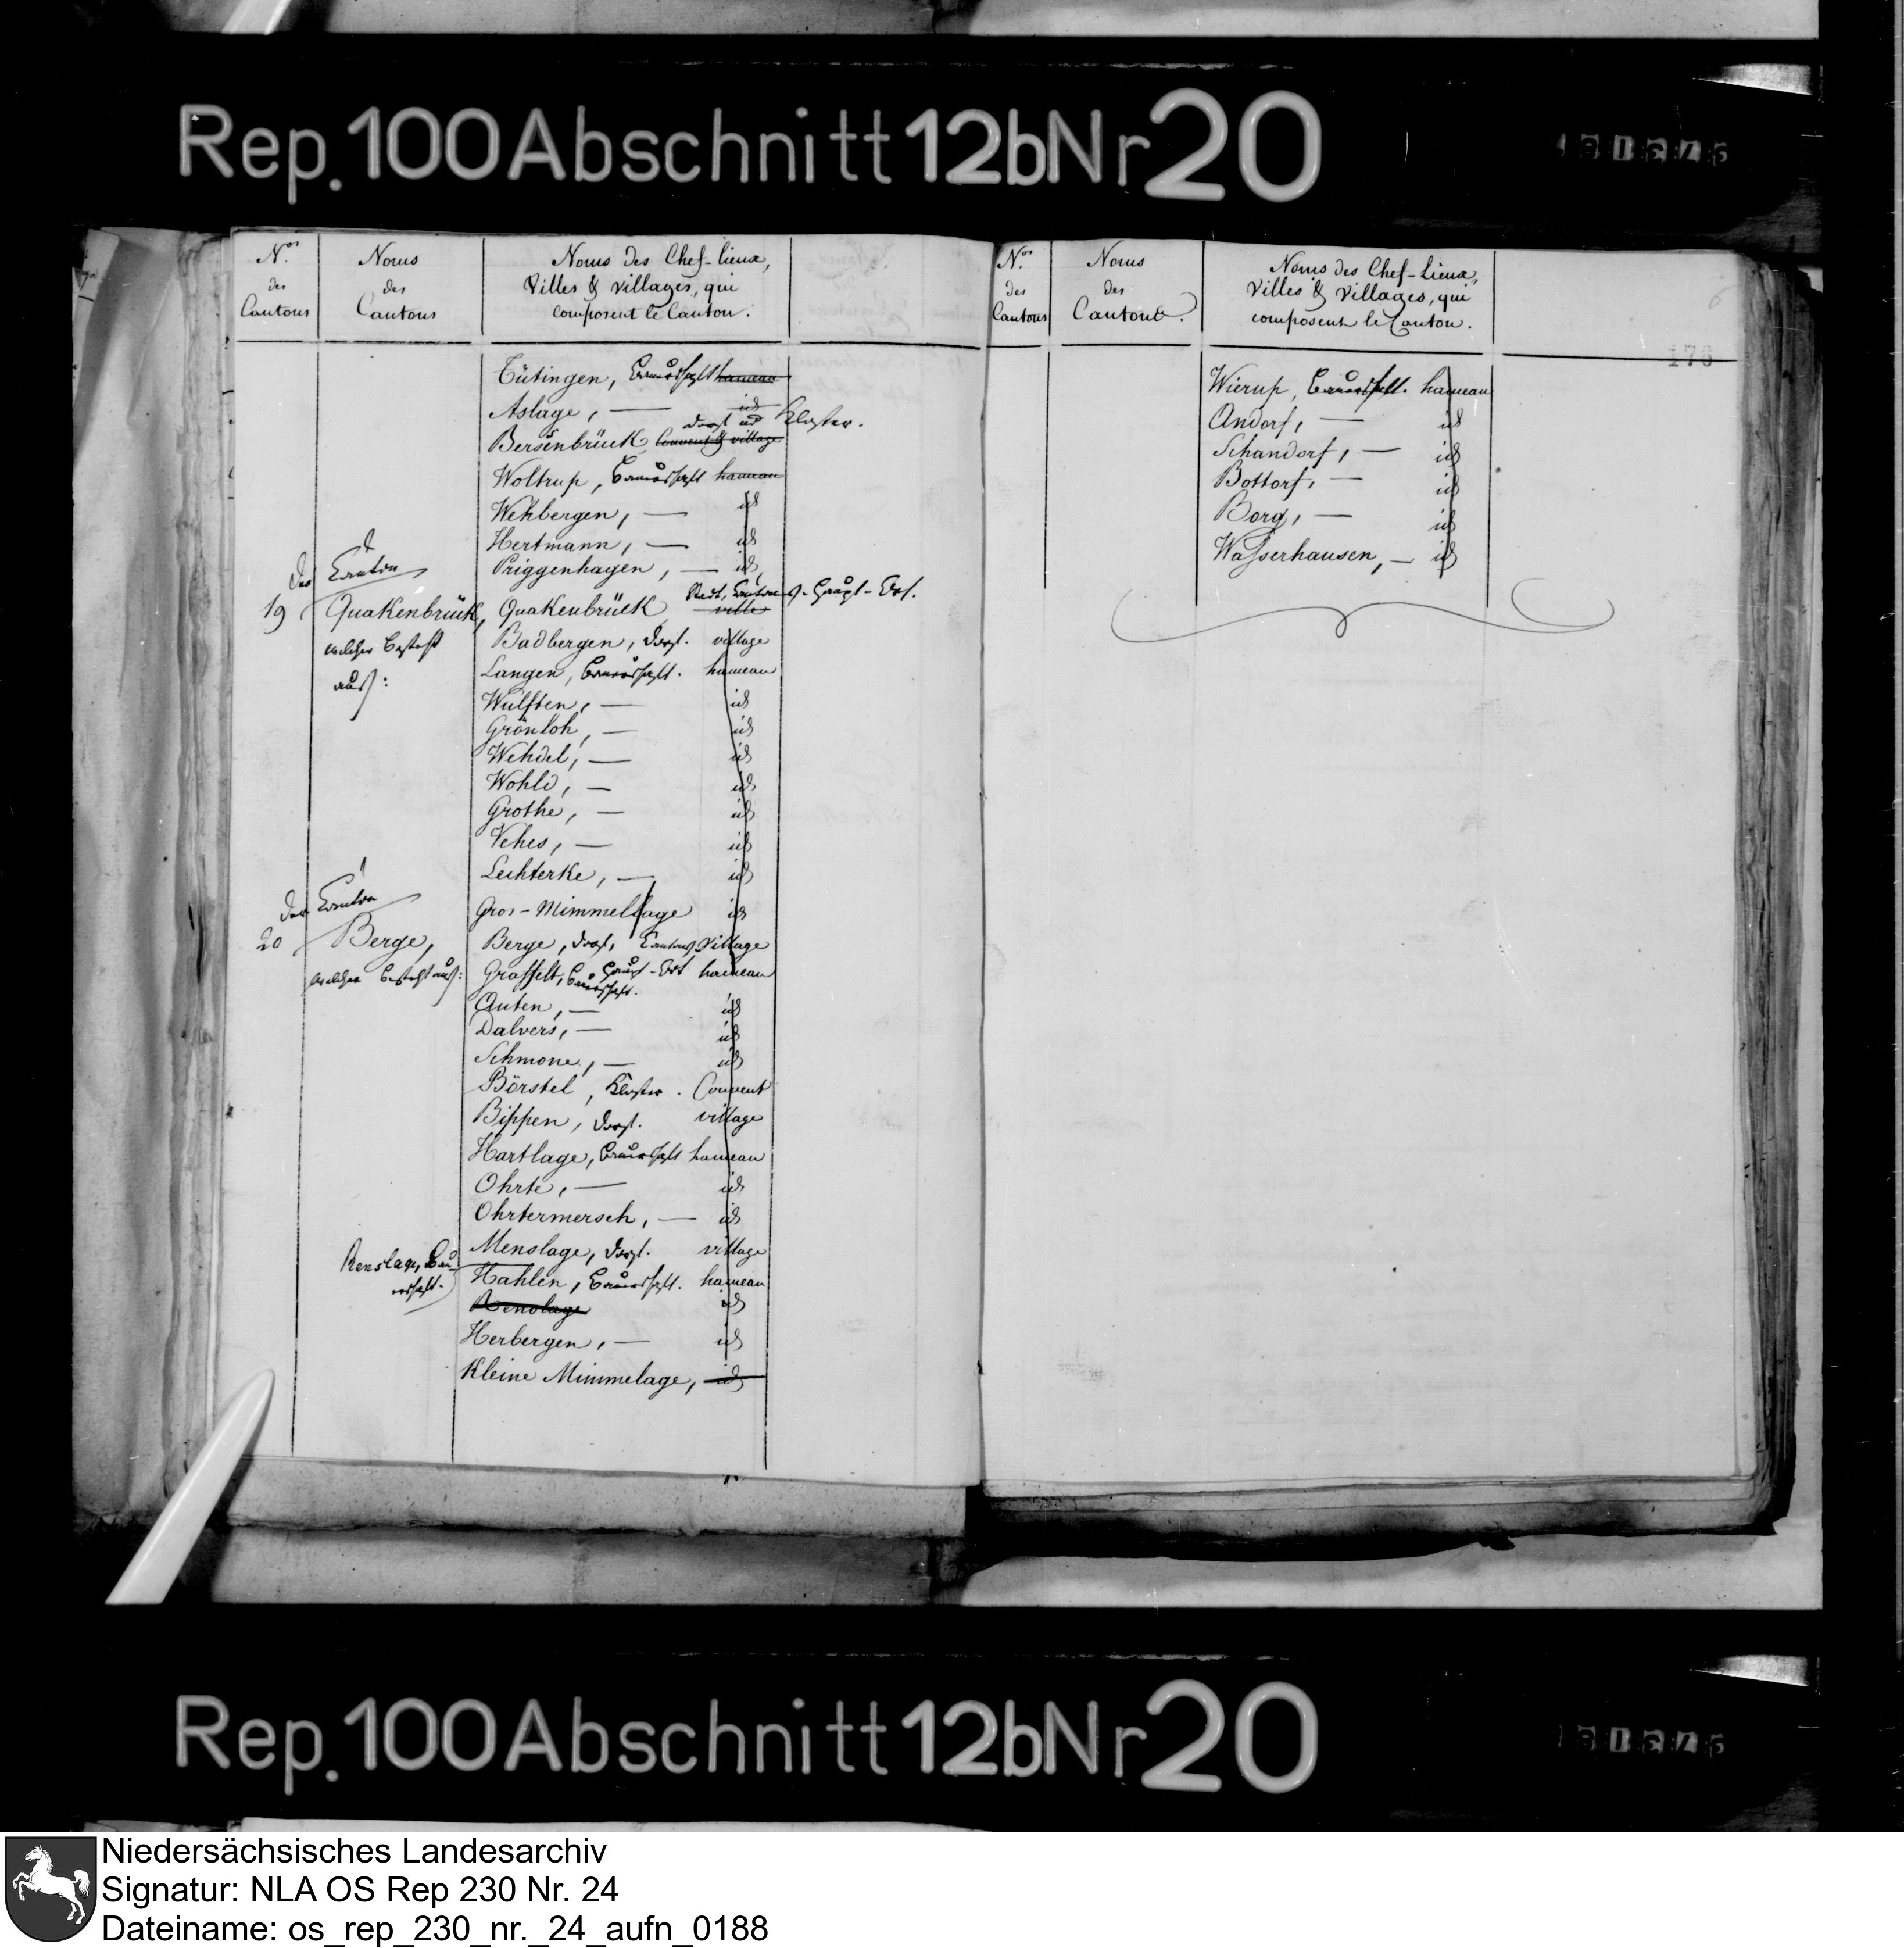 Rep. 100 Abschnitt 12b Nr 20
Nos des Cantons
Noms des Cantons
Noms des Chef-lieux, Villes & villages, qui composent le Canton.
Tütingen, Bauerschaft hameau
Aslage, — id
Dorf und Kloster.
Bersenbrück, Couvent & village
Woltrup, Bauerschaft hameau
Wehbergen, — id
Hertmann, — id
Priggenhagen, — id
Der Canton
19 Quakenbrück, Quakenbrück Stadt, Cantons-Haupt-Ort. ville
welcher besteht
aus:
Badbergen, Dorf. village
Langen, Bauerschaft. hameau
Wulften, — id
Grönloh, — id
Wehdel, — id
Wohld, — id
Grothe, — id
Vehes, — id
Lechterke, — id
Gros-Mimmellage id
Der Canton
20 Berge, Berge, Dorf, Cantons Village
Haupt-Ort
welcher besteht aus: Grafselt, Bauerschaft. hameau
Anten, — id
Dalvers, — id
Schmone, — id
Börstel, Kloster. Couvent
Bippen, Dorf. village
Hartlage, Bauerschaft hameau
Ohrte, — id
Ohrtermersch, — id
Menslage, Dorf. village
Renslage, Bau-
erschaft.
Hahlen, Bauerschaft. hameau
Renslage id
Herbergen, — id
Kleine Mimmelage, id
Nos des Cantons
Noms des Cantons.
Noms des Chef-Lieux, Villes & Villages, qui composent le Canton.
176
Wierup, Bauerschaft. hameau
Andorf, — id
Schandorf, — id
Bottorf, — id
Borg, — id
Wasserhausen, — id
Rep. 100 Abschnitt 12b Nr 20
Niedersächsisches Landesarchiv
Signatur: NLA OS Rep 230 Nr. 24
Dateiname: os_rep_230_nr._24_aufn_0188